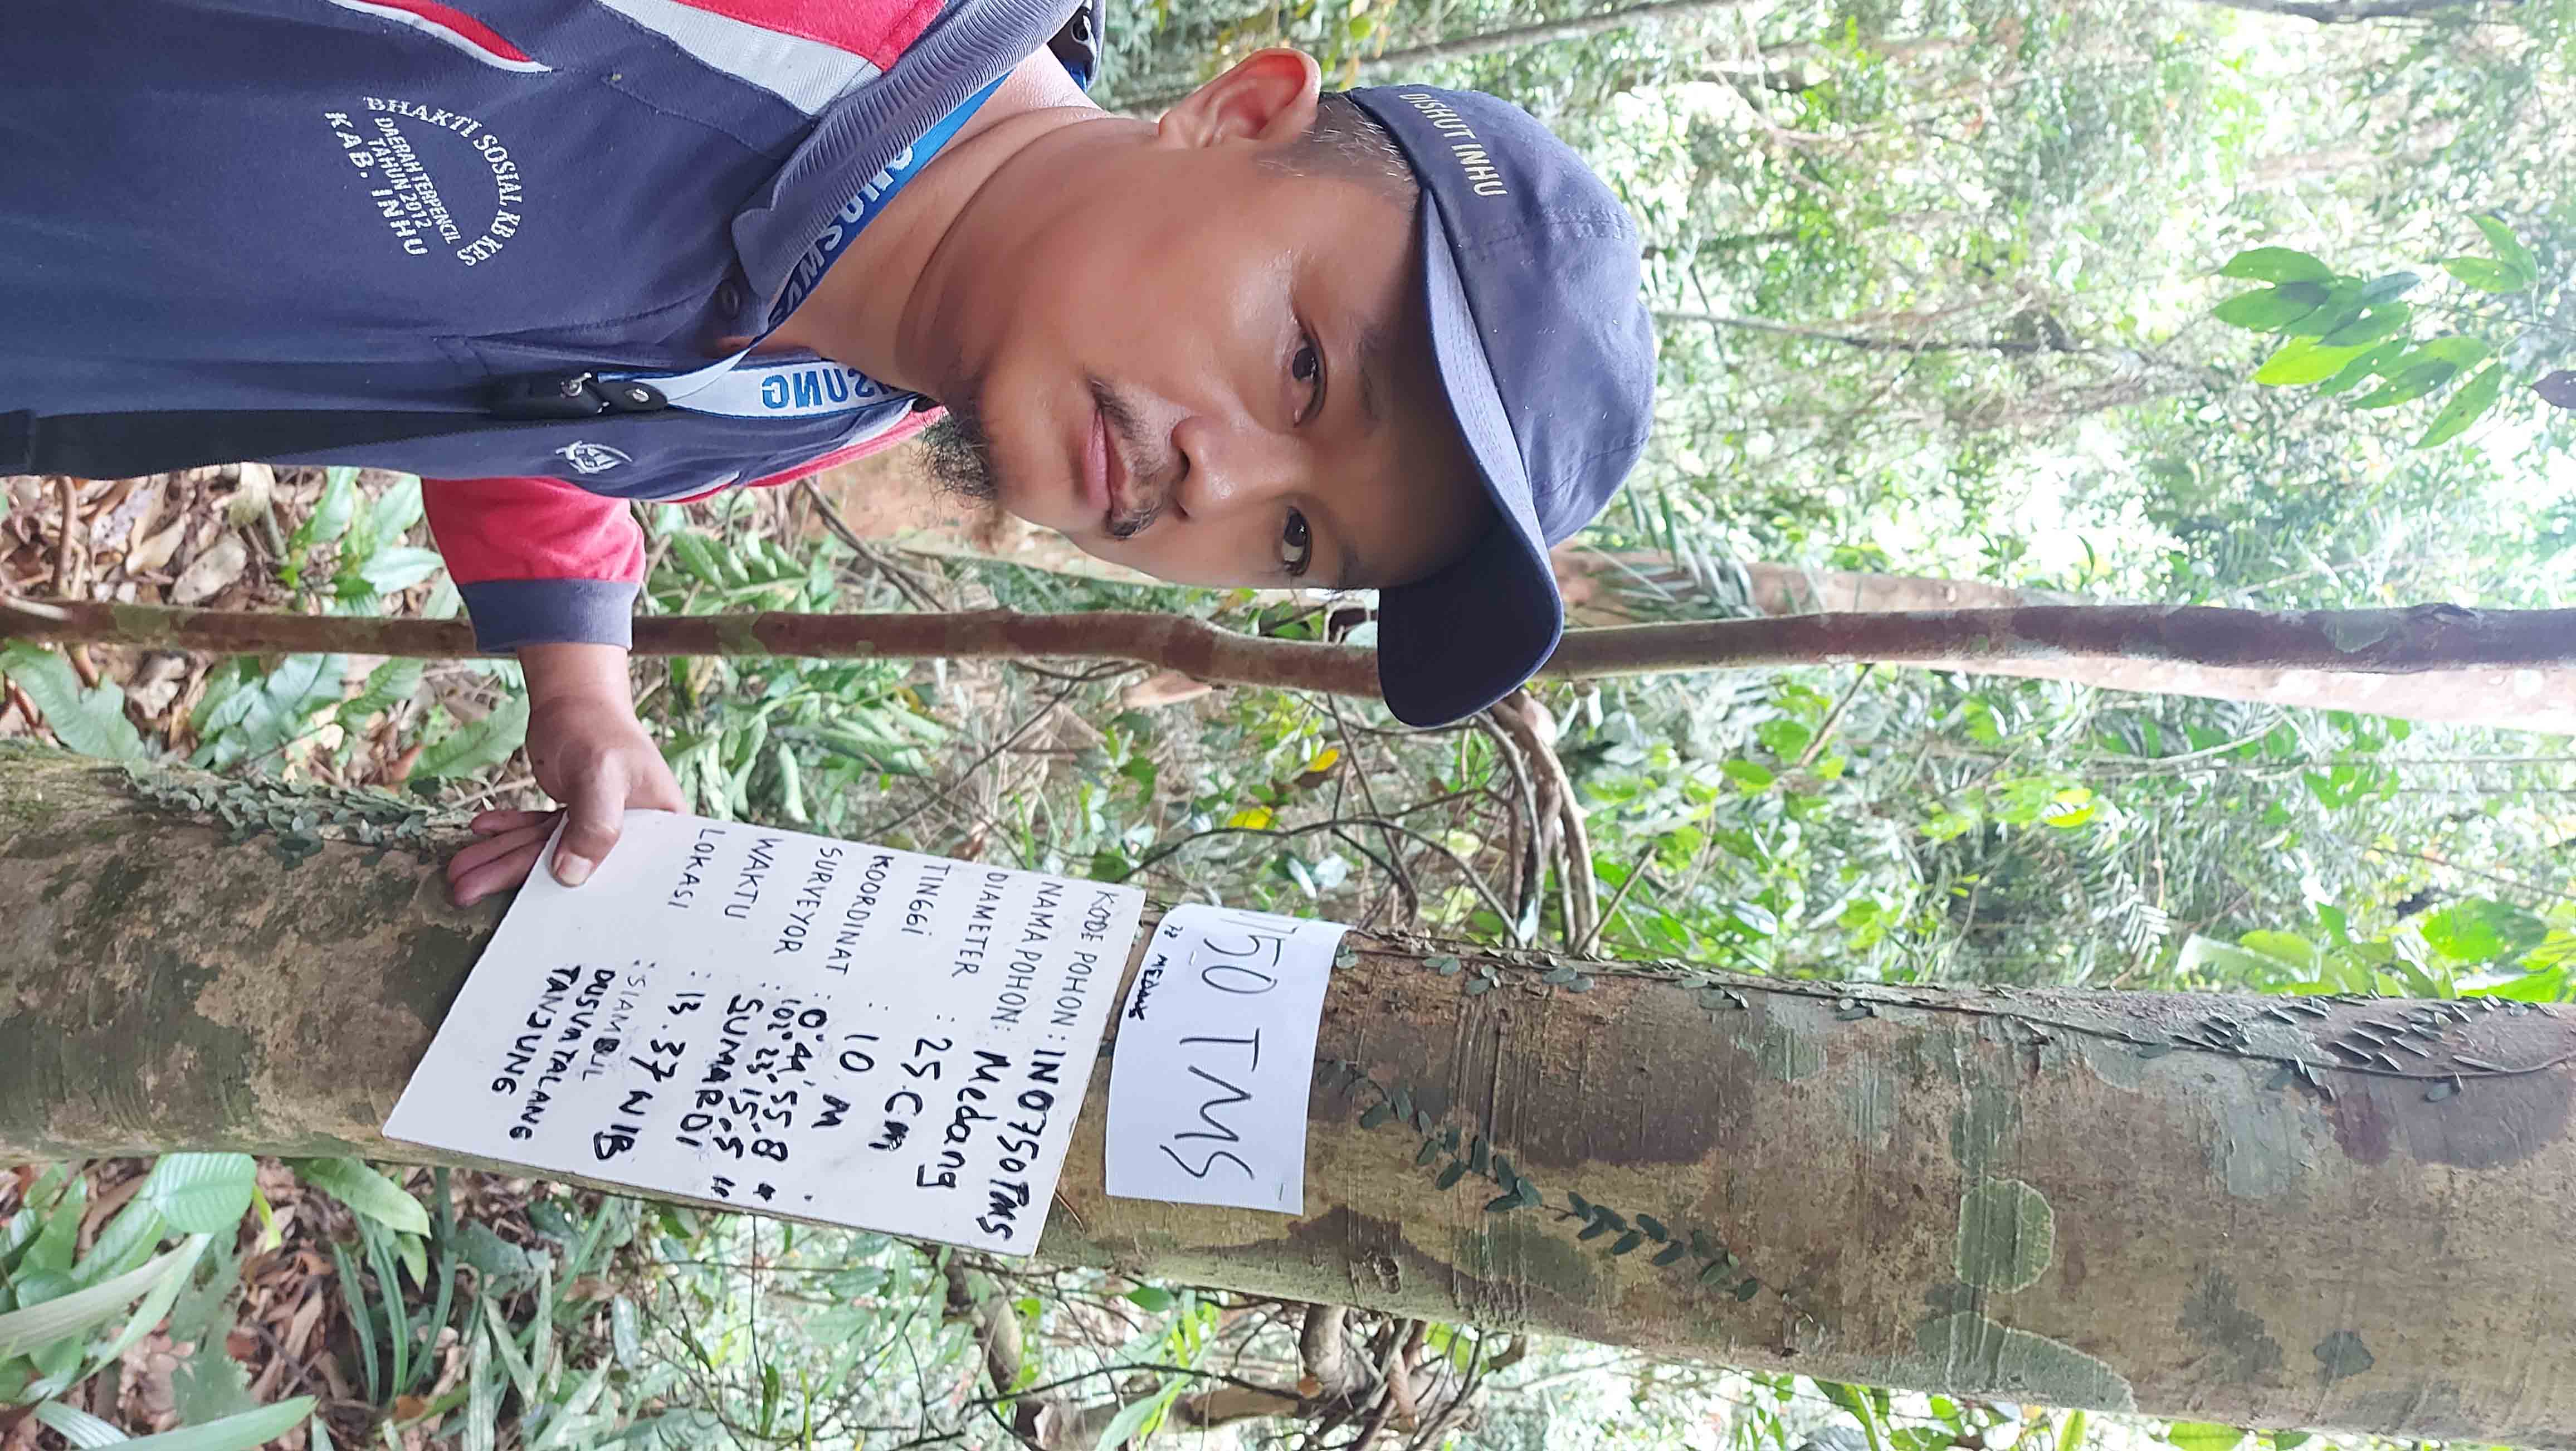 DISHUT INHU
0750 TMS
78 MEDANG
KODE POHON : IN0750TMS
NAMA POHON: Medang
DIAMETER : 25 Cm
TINGGI : 10 M
KOORDINAT : 0° 44' 55,8 "
102° 23 15,5 "
SURVEYOR : SUMARDI
WAKTU : 13.37 WIB
LOKASI : SIAMBUL
DUSUN TALANG
TANJUNG
BHAKTI SOSIAL KB KES
DAERAH TERPENCIL
TAHUN 2012
KAB. INHU